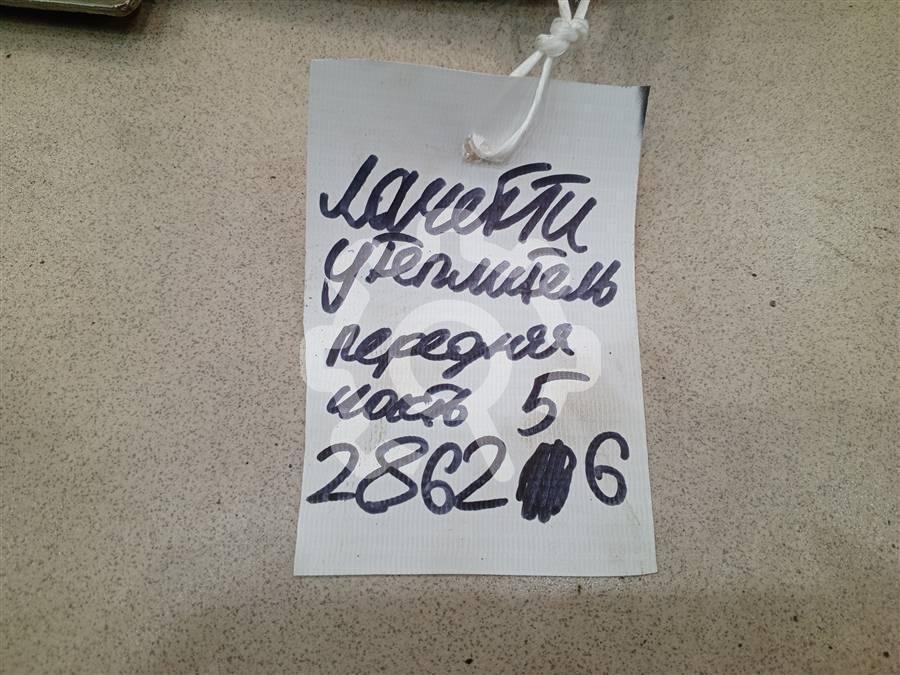 Лачетти
утеплитель
передняя
часть 5
2862 6